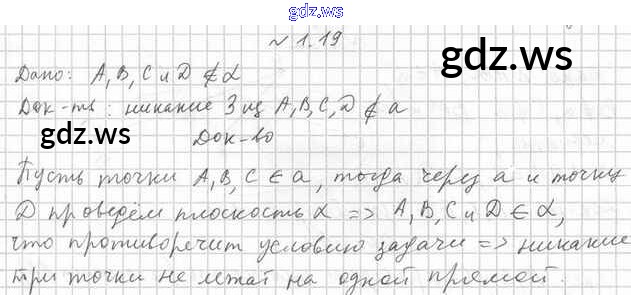 gdz.ws
№ 1.19
gdz.ws
Дано: A, B, C и D ∉ α
Док-ть: никакие 3 из A, B, C, D ∉ a
gdz.ws
Док-во
Пусть точки A, B, C ∈ a, тогда через a и точку
D проведём плоскость α => A, B, C и D ∈ α,
что противоречит условию задачи => никакие
три точки не лежат на одной прямой.